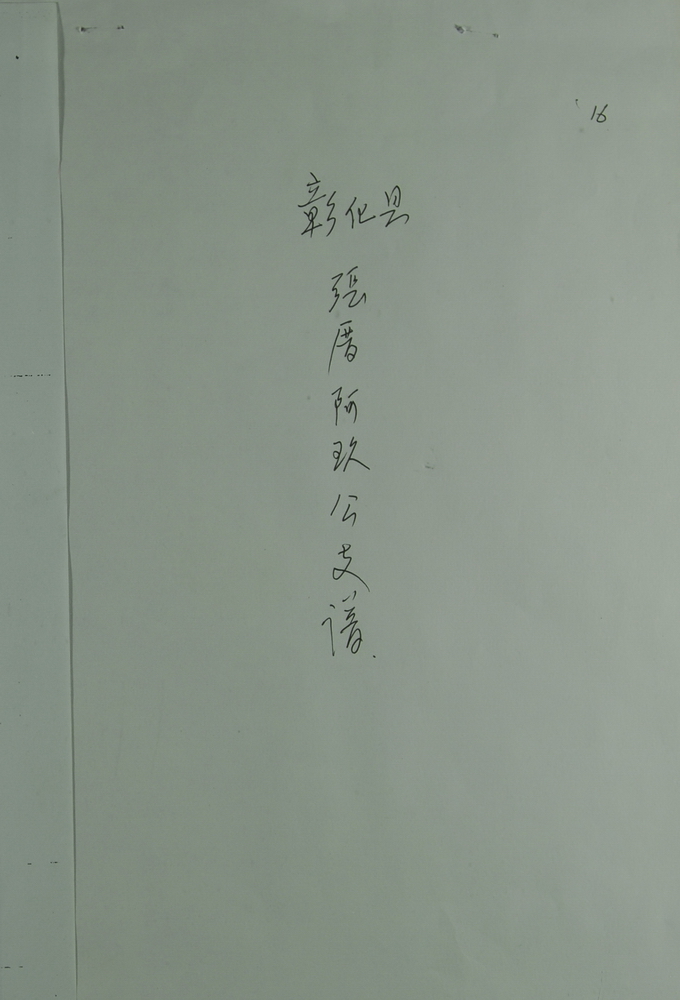 16
彰化县
張厝阿玖公支譜